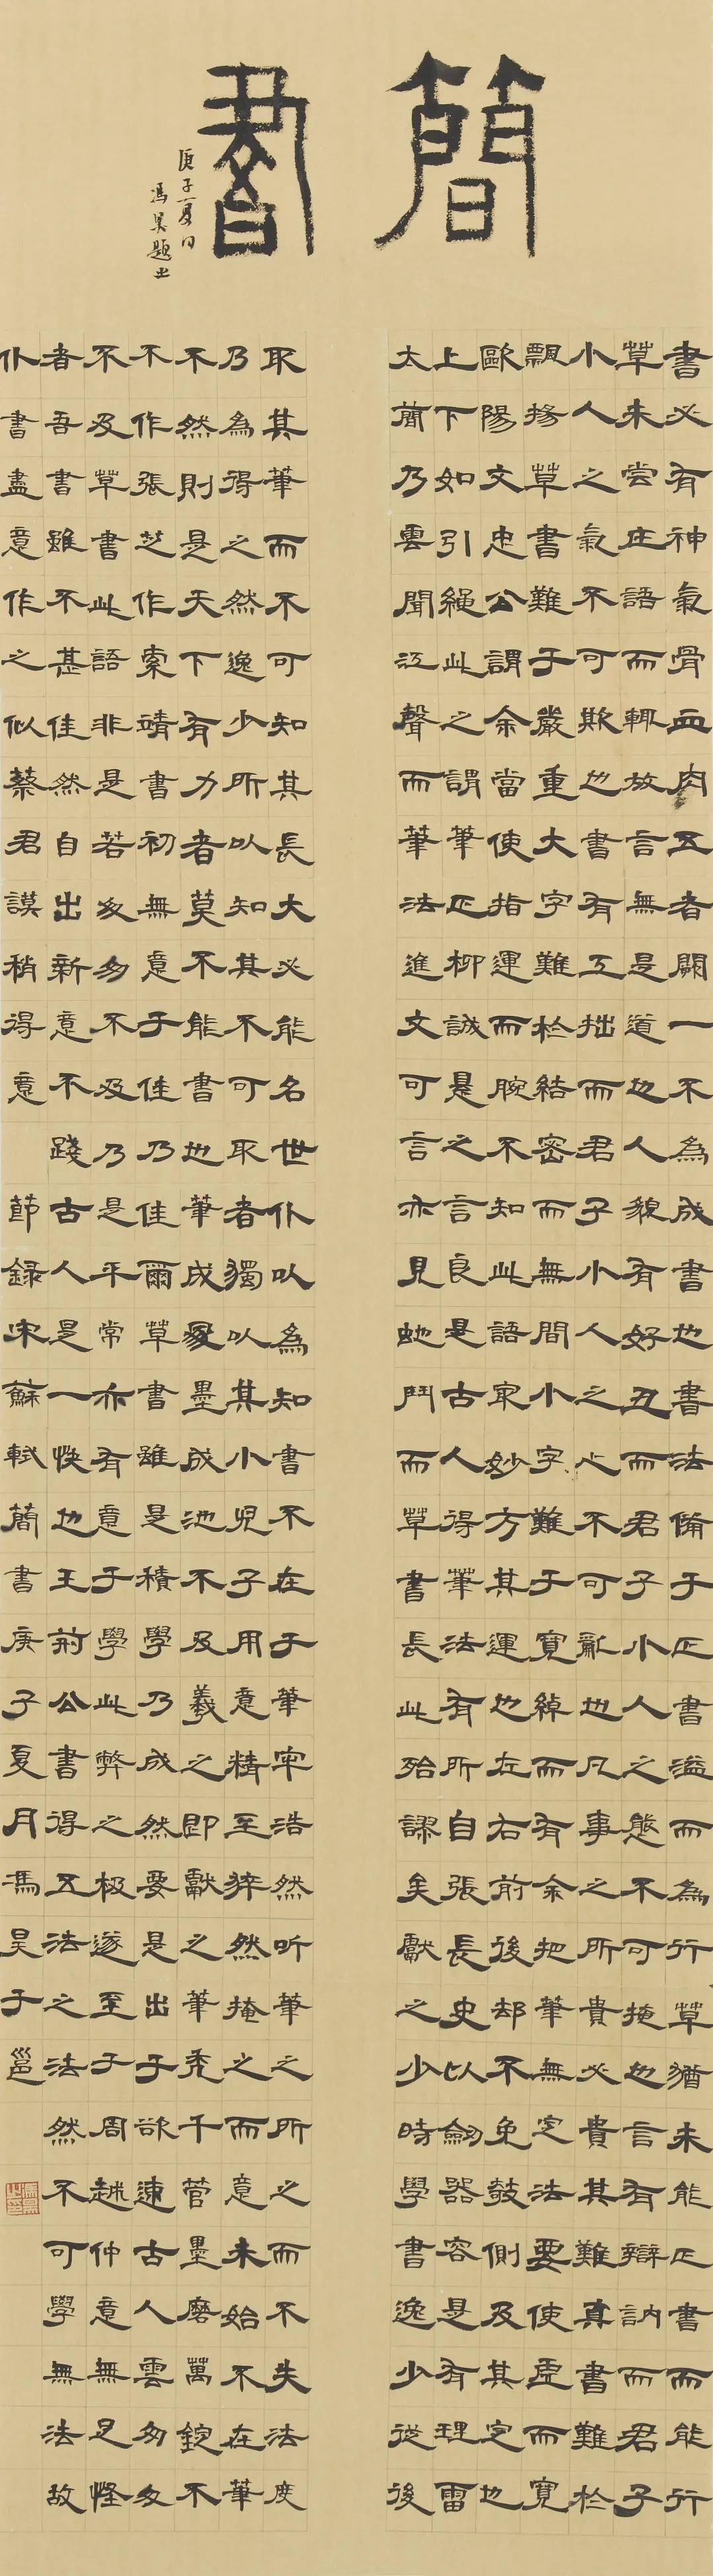 簡書
庚子夏月
馮昊題
書必有神氣骨血肉五者闕一不為成書也書法備于正書溢而為行草猶未能正書而能行
草未嘗庄語而輒放言無是道也人貌有好丑而君子小人之態不可掩也言有辯訥而君子
小人之氣不可欺也書有工拙而君子小人之心不可亂也凡事之所貴必貴其難真書難於
飄揚草書難于嚴重大字難於結密而無間小字難于寬綽而有余把筆無定法要使虛而寬
歐陽文忠公謂余當使指運而腕不知此語最妙方其運也左右前後却不免欹側及其定也
上下如引繩此之謂筆正柳誠是之言良是古人得筆法有所自張長史以劍器容是有理雷
太簡乃雲聞江聲而筆法進文可言亦見虵鬥而草書長此殆謬矣獻之少時學書逸少從後
取其筆而不可知其長大必能名世仆以為知書不在于筆牢浩然听筆之所之而不失法度
乃為得之然逸少所以知其不可取者獨以其小兒子用意精至猝然掩之而意未始不在筆
不然則是天下有力者莫不能書也筆成冢墨成池不及羲之即獻之筆禿千管墨磨萬錠不
不作張芝作索靖書初無意于佳乃佳爾草書雖是積學乃成然要是出于欲速古人雲匆匆
不及草書此語非是若匆匆不及乃是平常亦有意于學此弊之極遂至于周越仲意無足怪
者吾書雖不甚佳然自出新意不踐古人是一快也王荊公書得五法之法然不可學無法故
仆書盡意作之似蔡君謨稍得意 節録宋蘇軾簡書庚子夏月馮昊于邕